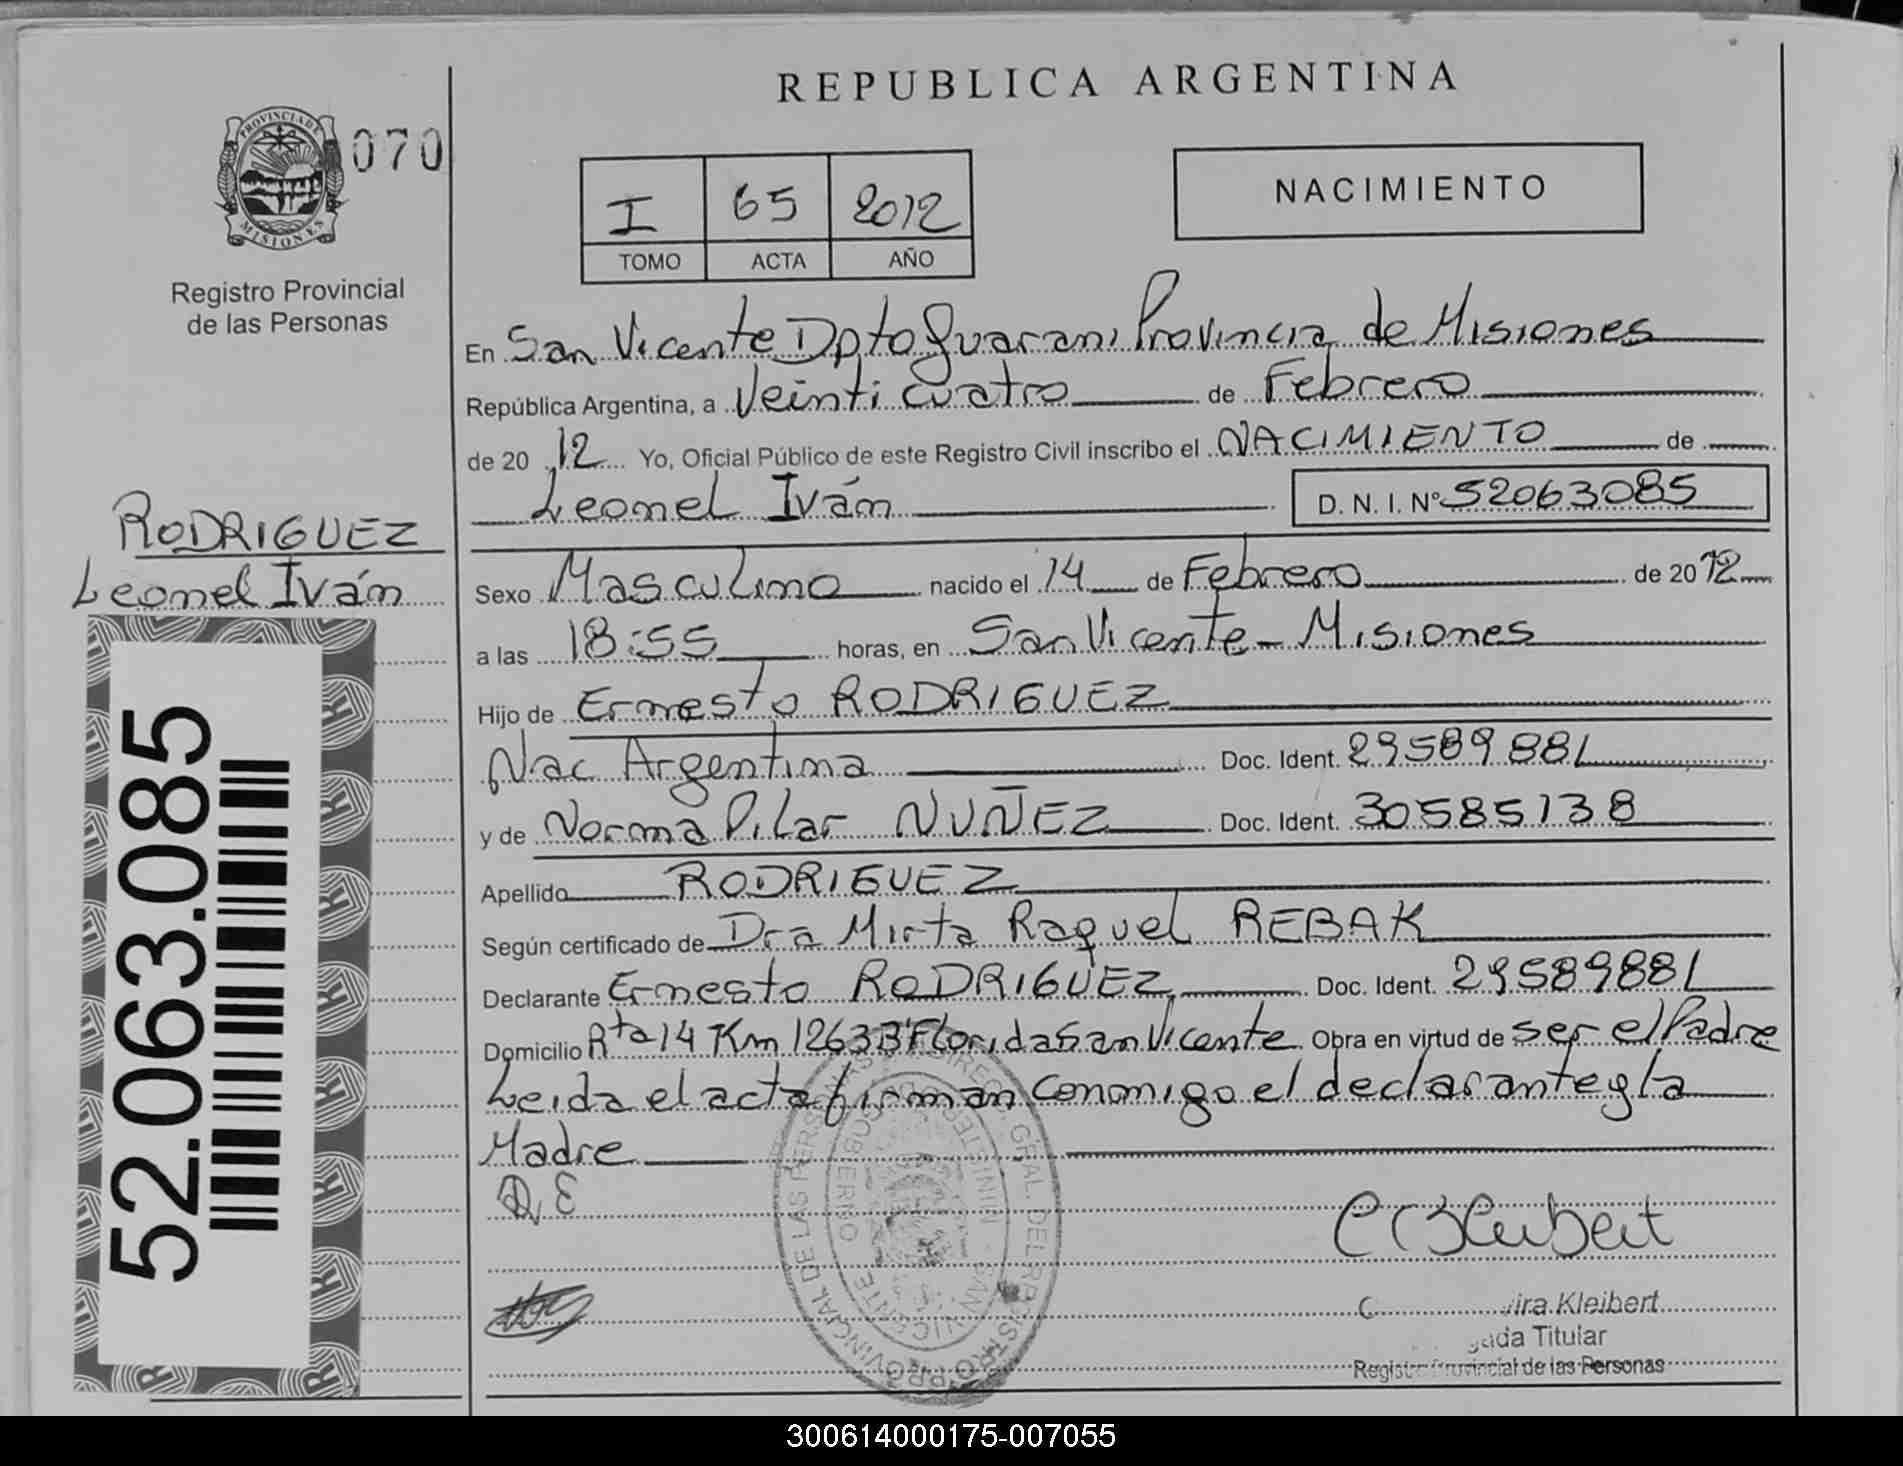 REPUBLICA ARGENTINA
PROVINCIA DE
MISIONES
070
Registro Provincial
de las Personas
I 65 2012
TOMO ACTA AÑO
NACIMIENTO
En San Vicente Dpto Guarani Provincia de Misiones
República Argentina, a Veinti cuatro de Febrero
de 20 12 Yo, Oficial Público de este Registro Civil inscribo el NACIMIENTO de
Leonel Iván D. N. I. Nº 52063085
RODRIGUEZ
Leonel Iván
52.063.085
Sexo Masculino nacido el 14 de Febrero de 20 12
a las 18:55 horas, en San Vicente - Misiones
Hijo de Ernesto RODRIGUEZ
Nac Argentina Doc. Ident. 29589881
y de Norma Pilar NUÑEZ Doc. Ident. 30585138
Apellido RODRIGUEZ
Según certificado de Dra Mirta Raquel REBAK
Declarante Ernesto RODRIGUEZ Doc. Ident. 29589881
Domicilio Rta 14 Km 1263 Bº Florida San Vicente Obra en virtud de ser el Padre
Leida el acta firman conmigo el declarante y la
Madre
R E
Kleibert
Titular
Registro Provincial de las Personas
300614000175-007055